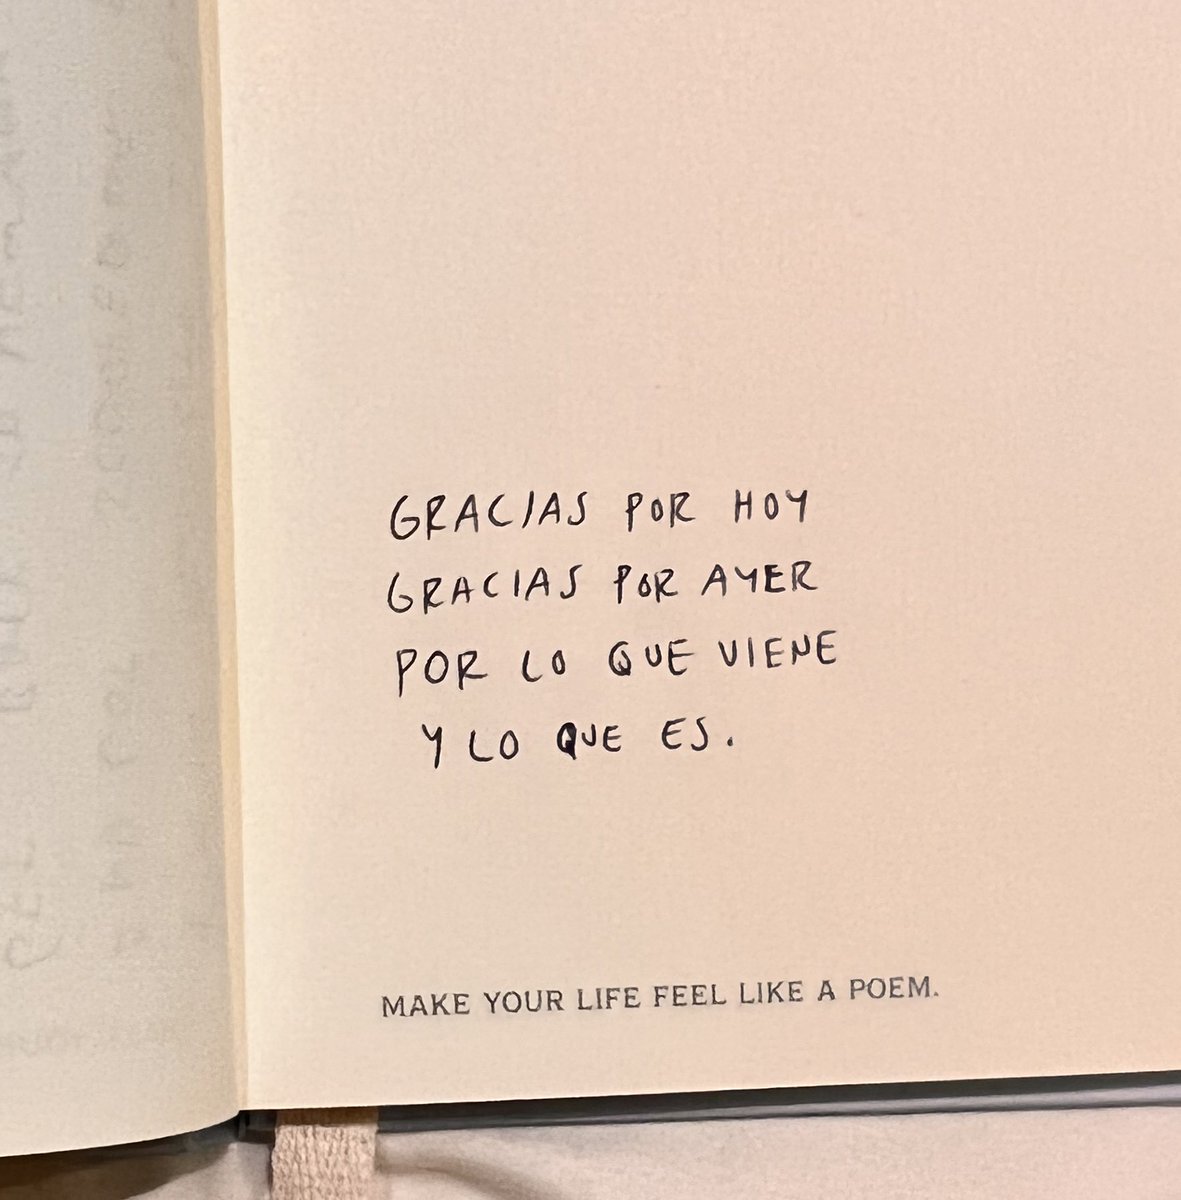 GRACIAS POR HOY
GRACIAS POR AYER
POR LO QUE VIENE
Y LO QUE ES.
MAKE YOUR LIFE FEEL LIKE A POEM.